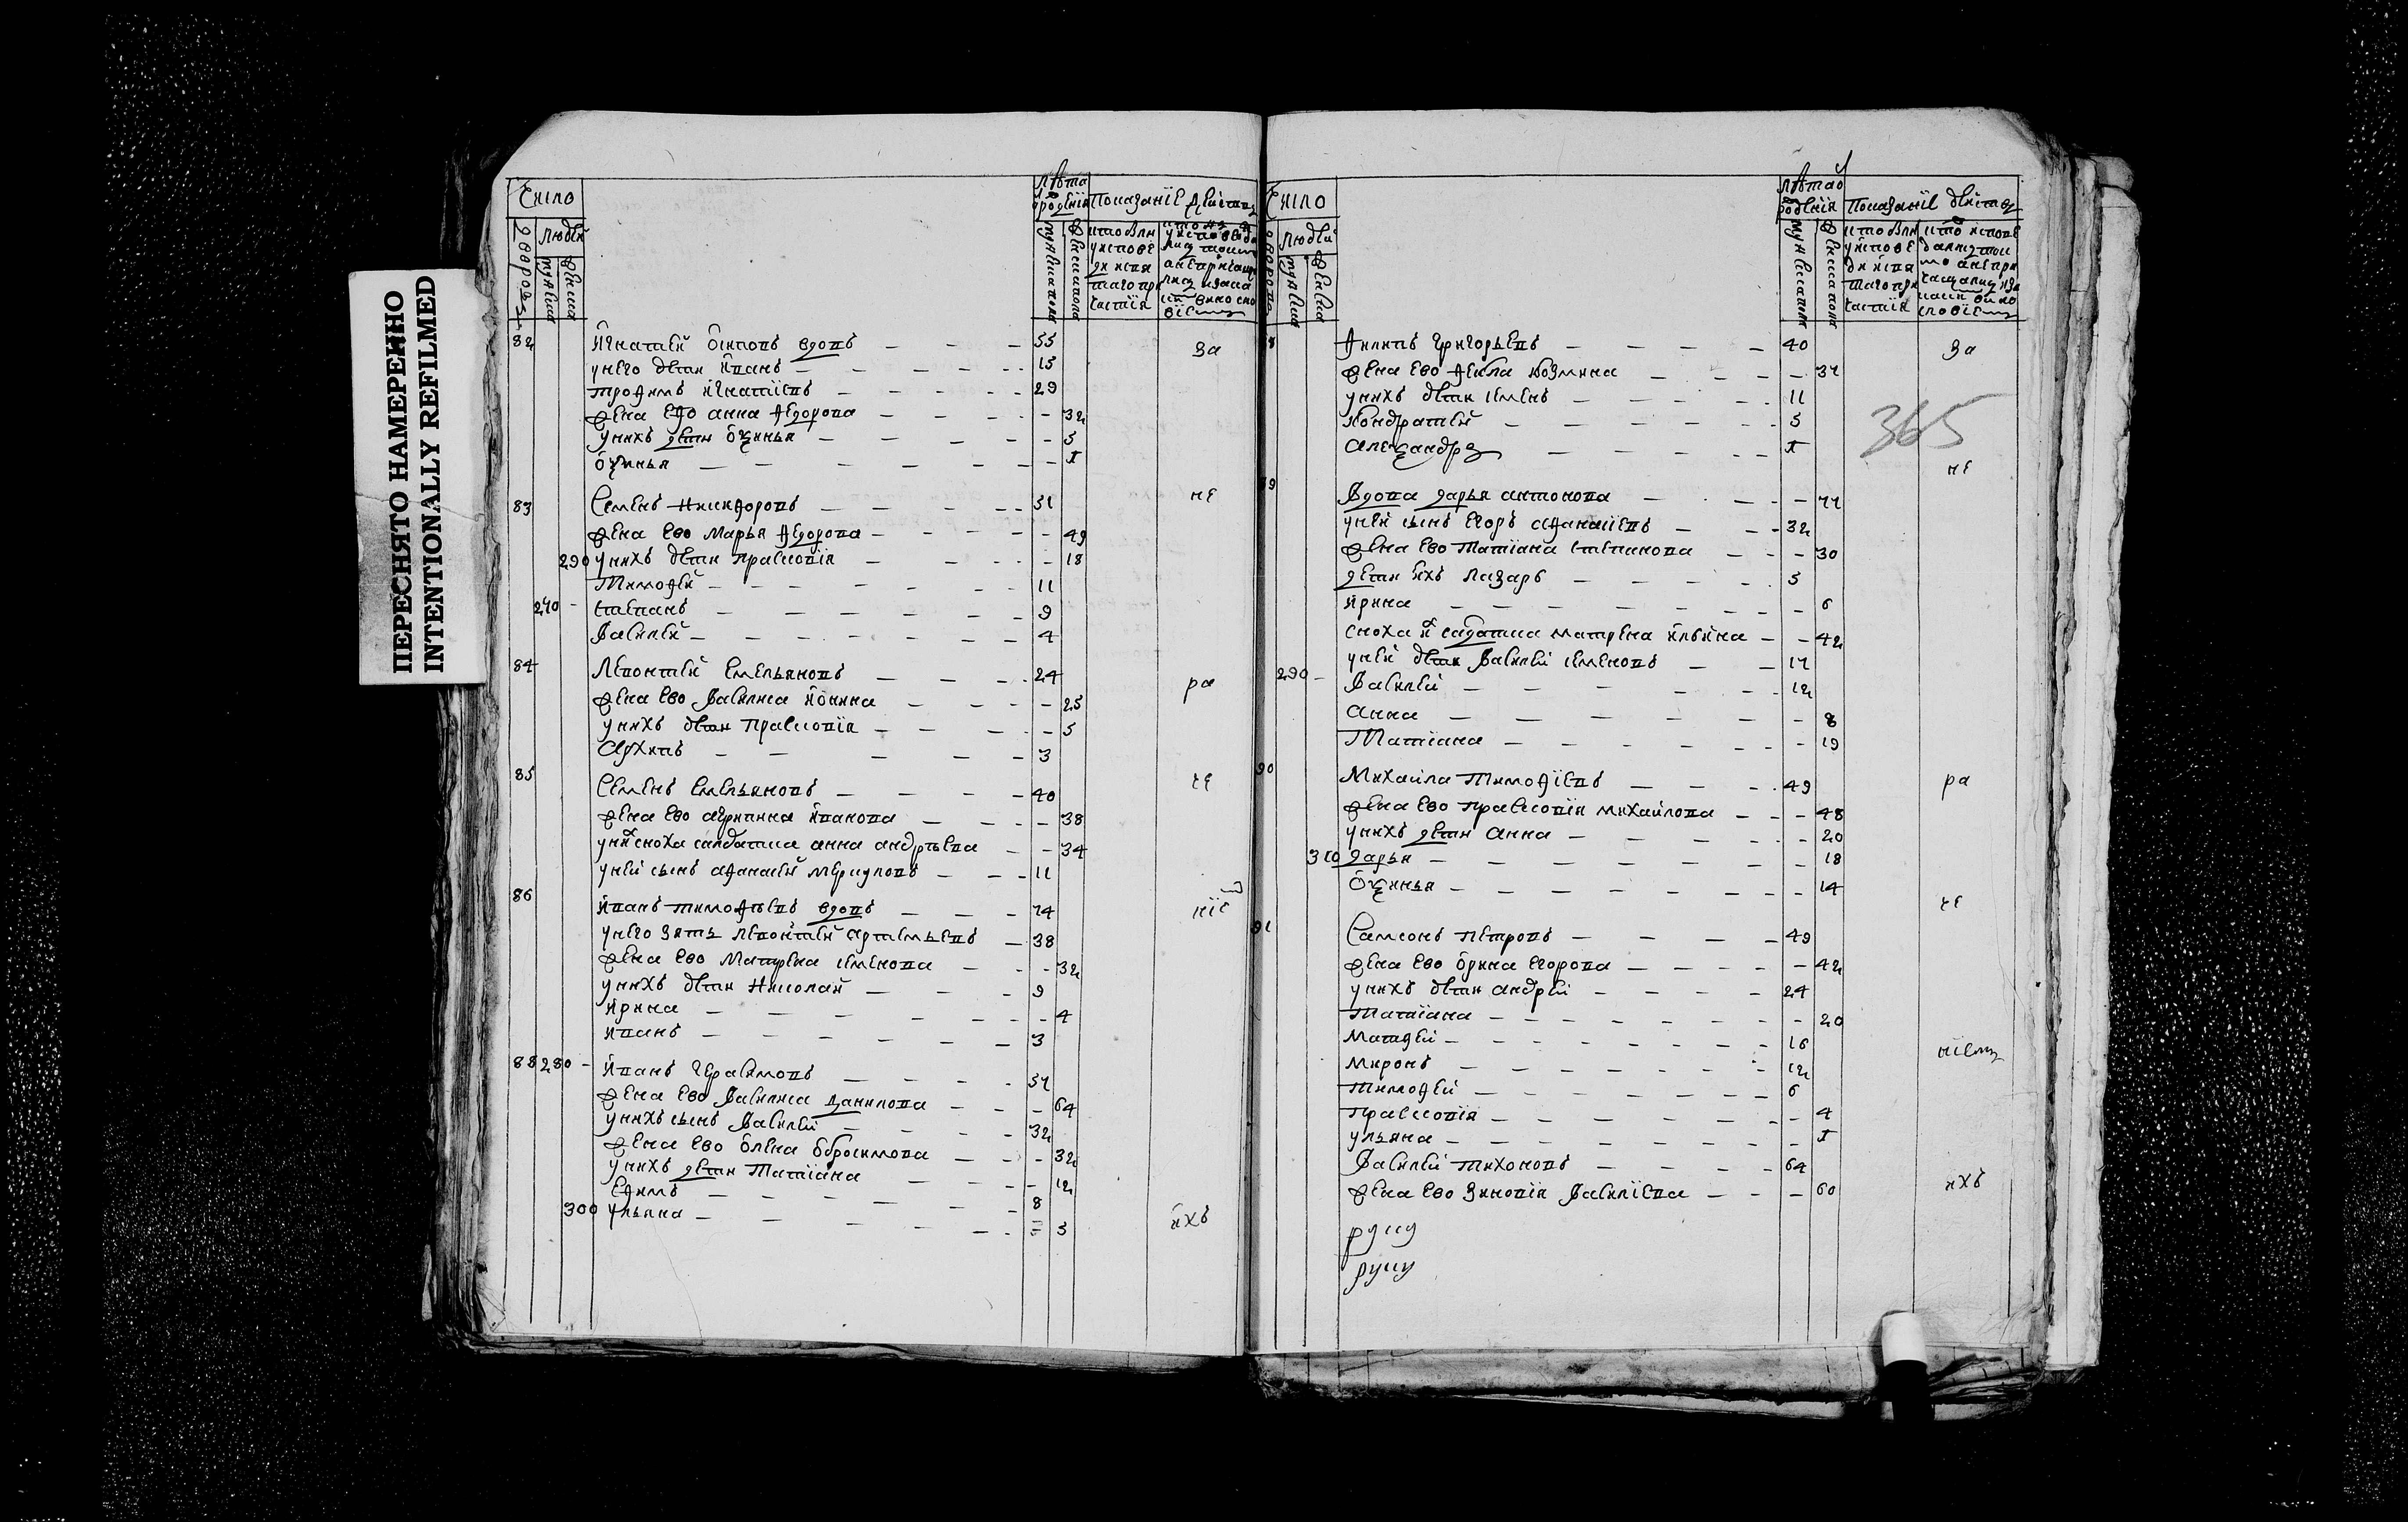 ПЕРЕСНЯТО НАМЕРЕННО
INTENTIONALLY REFILMED
Число
людей
дворовъ
мужеска
женска
лѣта
рождения
Показанїе действъ
82 Игнатей Осиповъ вдовъ 55 за
у него дети Иванъ 15
Трофимъ Игнатїевъ 29
жена ево Анна Федорова 32
у нихъ дети Оѯинья 5
Оѯинья 1
83 Семенъ Никифоровъ 51 не
жена ево Марья Федорова 49
290 у нихъ дети Прасковїя 18
Тимофей 11
270 Степанъ 9
Василей 4
84 Левонтей Емельяновъ 24 ра
жена ево Василиса Ионина 25
у нихъ дети Прасковїя 5
Архипъ 3
85 Семенъ Емельяновъ 40 че
жена ево Агрипина Иванова 38
у них сноха салдатка Анна Андрѣева 34
у ней сынъ Афанасей Меркуловъ 11
86 Иванъ Тимофѣевъ вдовъ 74 нїе
у него зять Левонтей Артемьевъ 38
жена ево Матрена Семенова 32
у нихъ дети Николай 9
Ирина 4
Иванъ 3
88 280 Иванъ Герасимовъ 57
жена ево Василиса Данилова 64
у нихъ сынъ Василей 32
жена ево Олена Обросимова 32
у нихъ дети Татїана 12
Ефимъ 8
300 Ульяна 5 ихъ
Число
людей
мужеска
женска
лѣта
рождения
Показанїе действъ
365
Филипъ Григорьевъ 40 за
жена ево Фекла Козмина 37
у нихъ дети Семенъ 11
Кондратей 5
Алеѯандръ 1
не
Вдова Дарья Антонова 77
у ней сынъ Егоръ Афанасїевъ 32
жена ево Татїана Степанова 30
дети ихъ Лазарь 5
Ирина 6
сноха их садатка Матрена Ильина 42
у ней дети Василей Семеновъ 17
290 Василей 12
Анна 8
Татїана 19
90 Михайла Тимофїевъ 49 ра
жена ево Прасковїя Михайлова 48
у нихъ дети Анна 20
310 Дарья 18
Оѯинья 14
че
91 Самсонъ Петровъ 49
жена ево Орина Егорова 42
у нихъ дети Андрей 24
Татїана 20
Матфей 16
нїемъ
Миронъ 12
Тимофей 6
Прасковїя 4
Ульяна 1
Василей Тихоновъ 64
жена ево Зиновїя Василїева 60 ихъ
руку
руку